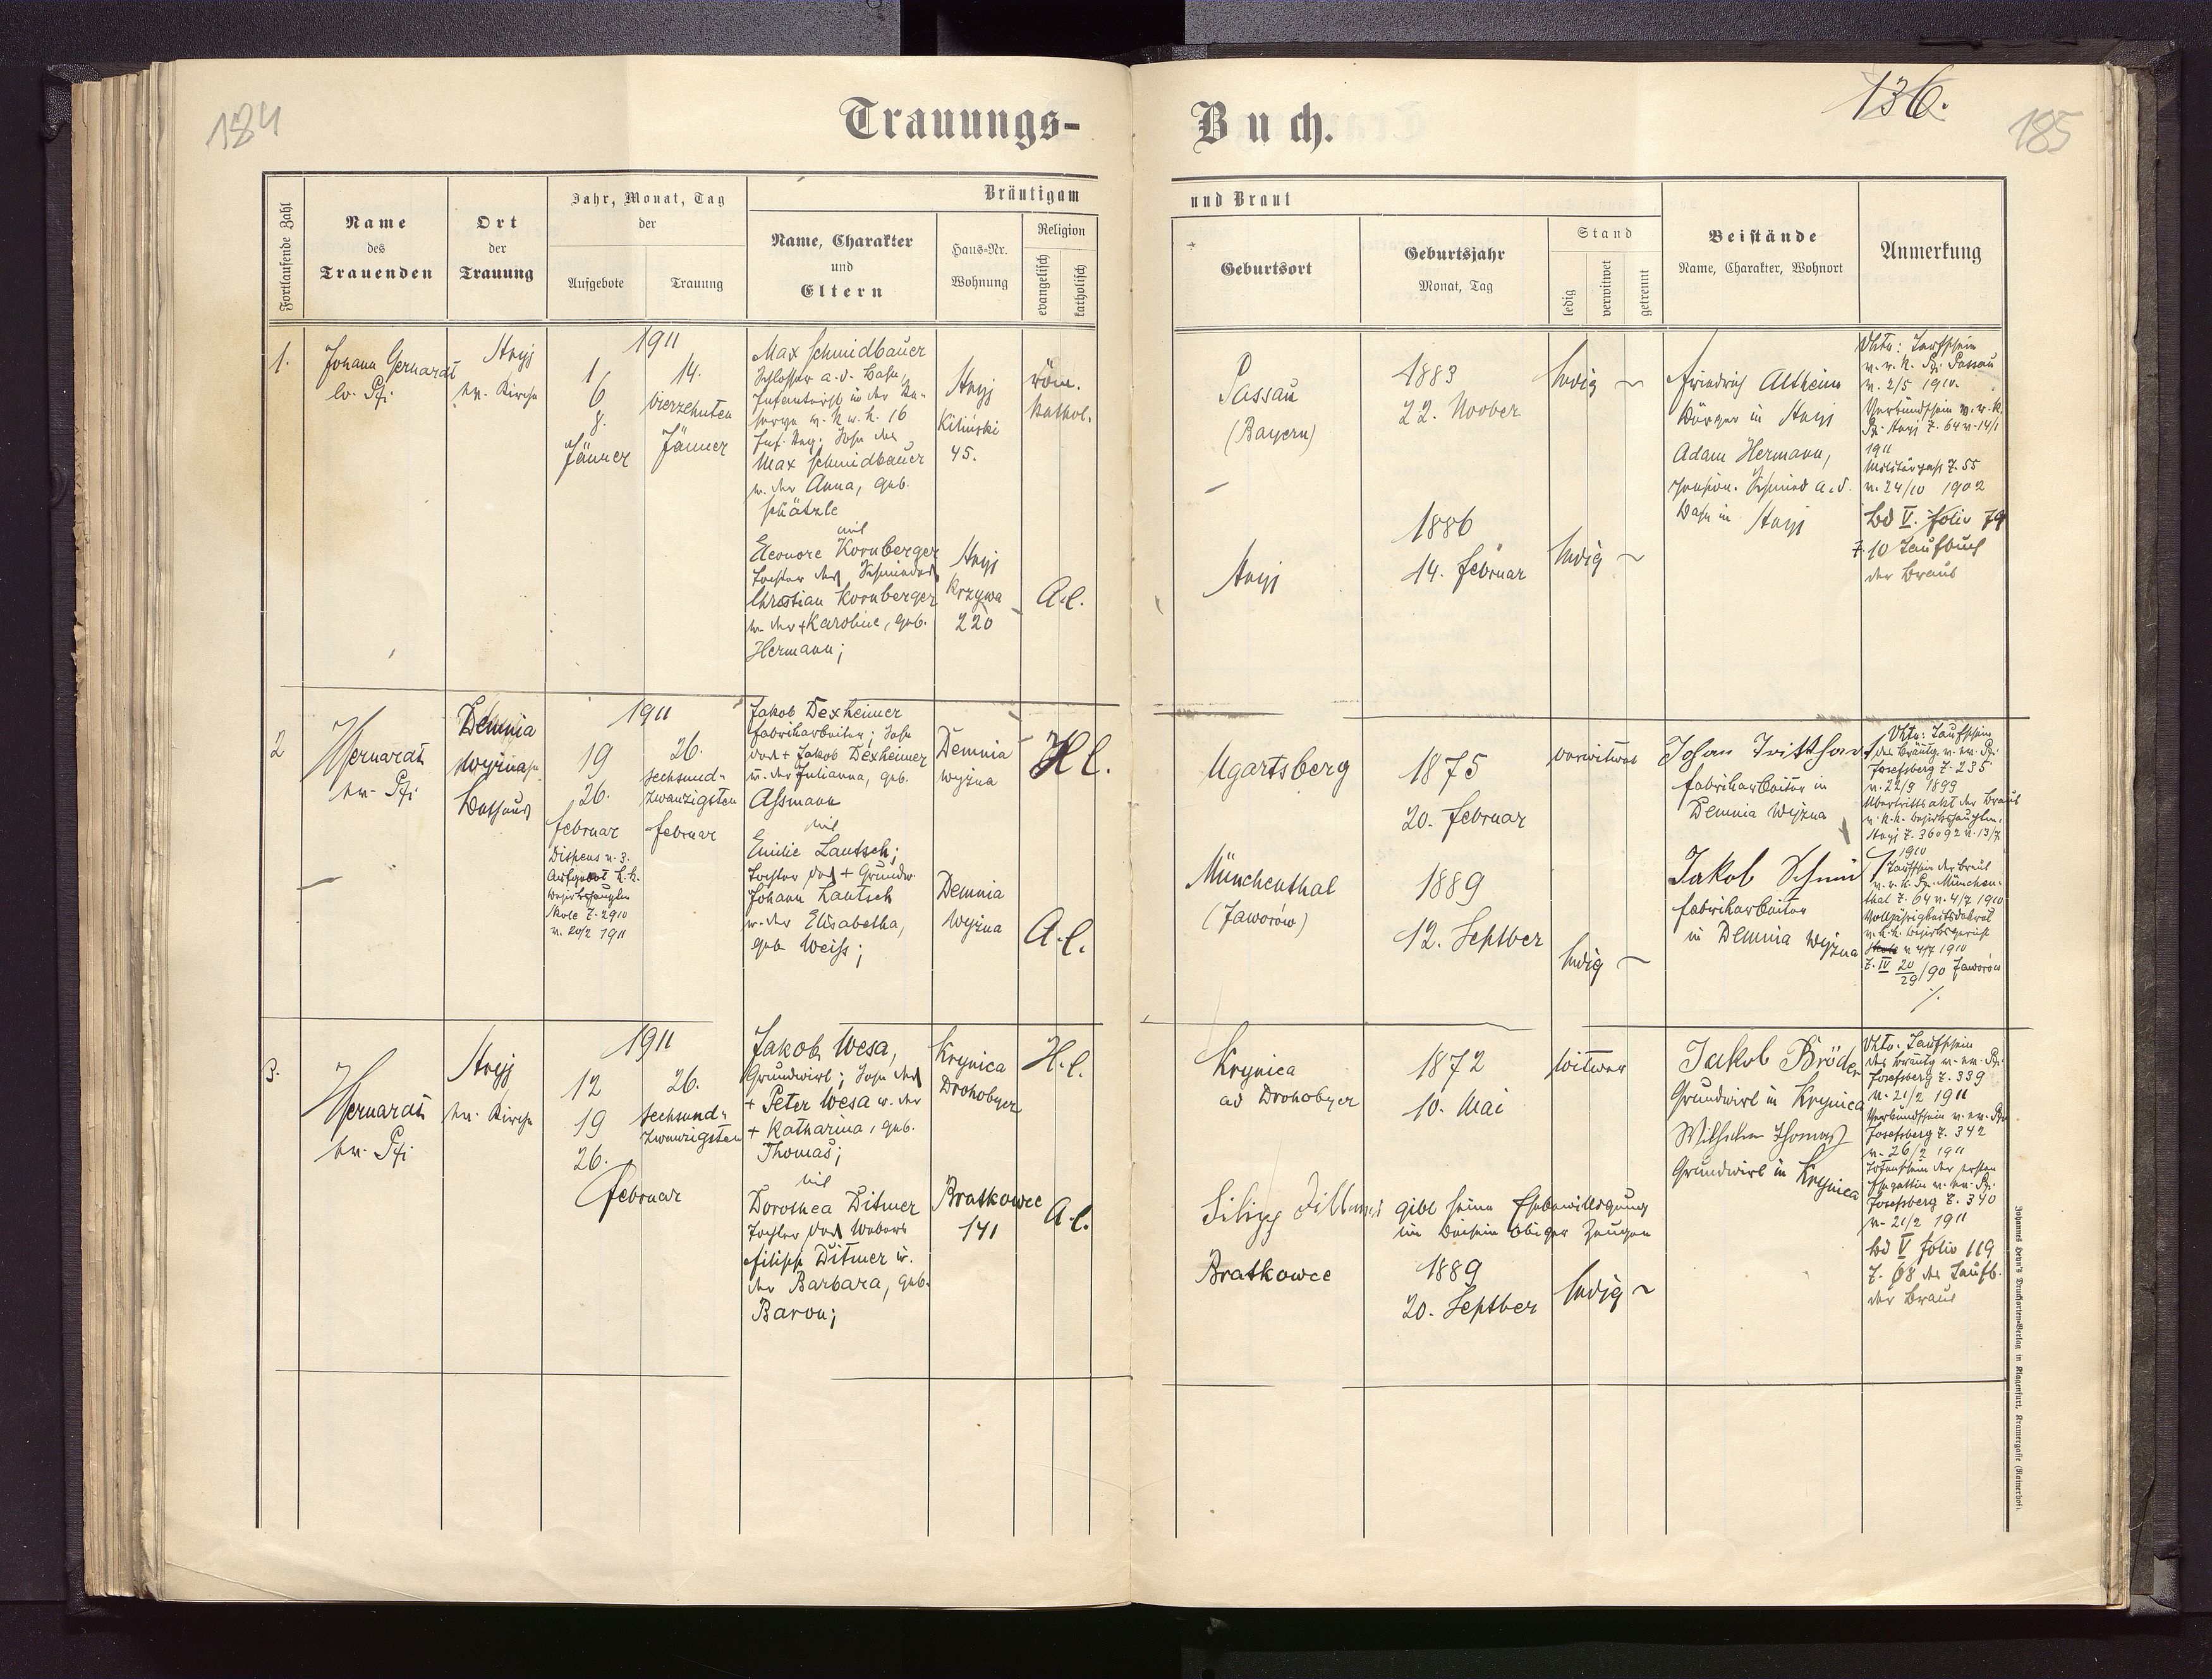 184
Trauungs-
Buch.
136.
185
Fortlaufende Zahl
Name
des
Trauenden
Ort
der
Trauung
Jahr, Monat, Tag
der
Aufgebote
Trauung
Bräutigam
Name, Charakter
und
Eltern
Haus-Nr.
Wohnung
Religion
evangelisch
katholisch
und Braut
Geburtsort
Geburtsjahr
Monat, Tag
Stand
ledig
verwitwet
getrennt
Beistände
Name, Charakter, Wohnort
Anmerkung
1.
Johann Gerhardt
ev. Pfr
Stryj
ev. Kirche
1911
1
6
8.
Jänner
14.
vierzehnten
Jänner
Max Schmidbauer
Schlosser a. d. Bahn,
in der
k. u. k. 16
Inf. Reg; Sohn des
Max Schmidbauer
u. der Anna, geb.
Schätzle
mit
Eleonore Kornberger
Tochter des Schmiedes
Christian Kornberger
u. der + Karoline, geb.
Hermann;
Stryj
Kiliński
45.
Stryj
Krzywa
220
röm.
kathol.
A. C.
Passau
(Bayern)
Stryj
1883
22. Novber
1886
14. Februar
ledig
ledig
Friedrich Altheim
Bürger in Stryj
Adam Hermann,
pension. Schmied a. d.
Bahn in Stryj
Taufschein
Passau
v. 2/5 1910.
Verkündschein v. r. k.
Stryj Z. 64 v. 14/1
1911
Militärpass Z. 55
v. 24/10 1902
Bd V. folio 79
Z. 10 Taufbuch
der Braut
2
Gerhardt
ev. Pfr
Demnia
wyżna
Bethaus
1911
19
26.
Februar
Dispens v. 3.
Aufgebot k. k.
Skole Z. 2910
v. 20/2 1911
26.
sechsund-
zwanzigsten
Februar
Jakob Dexheimer
Fabriksarbeiter; Sohn
des + Jakob Dexheimer
u. der Julianna, geb.
Assmann
mit
Emilie Lautsch;
Tochter des + Grundw.
Johann Lautsch
u. der Elisabetha,
geb. Weiss;
Demnia
wyżna
Demnia
wyżna
H. C.
A. C.
Ugartsberg
Münchenthal
(Jaworów)
1875
20. Februar
1889
12. Septber
verwitwet
ledig
Johan
Fabriksarbeiter in
Demnia wyżna
Jakob Schmid
Fabriksarbeiter
in Demnia wyżna
Taufschein
des Bräutg. v. ev. Pfr.
Josefsberg Z. 235
v. 22/9 1899
Übertrittsakt der Braut
v. k. k.
Stryj Z. 36092 v. 13/7
1910
Taufschein der Braut
v. r. k. Pfr. München-
thal Z. 64 v. 4/7 1910
Volljährigkeitsdekret
v. k. k. Bezirksgericht
v. 4/7 1910
Z. IV 20/29/90 Jaworów
3.
Gerhardt
ev. Pfr
Stryj
ev. Kirche
1911
12
19
26.
Februar
26.
sechsund-
zwanzigsten
Jakob Wesa,
Grundwirt; Sohn des
+ Peter Wesa u. der
+ Katharina, geb.
Thomas;
mit
Dorothea Ditmer
Tochter des Webers
Filipp Ditmer u.
der Barbara, geb.
Baron;
Krynica
Drohobycz
Bratkowce
141
H. C.
A. C.
Krynica
ad Drohobycz
1872
10. Mai
Witwer
Filipp Dittmer gibt seine Ehebewilligung
im Beisein obiger Zeugen
Bratkowce
1889
20. Septber
ledig
Jakob Bröder
Grundwirt in Krynica
Wilhelm Thomas
Grundwirt in Krynica
Taufschein
des Bräutg. v. ev. Pfr.
Josefsberg Z. 339
v. 21/2 1911
Verkündschein v. ev. Pfr.
Josefsberg Z. 342
v. 26/2 1911
Totenschein der ersten
Ehegattin v. ev. Pfr.
Josefsberg Z. 340
v. 21/2 1911
Bd V folio 119
Z. 68 des Taufb.
der Braut
Johannes Heyn's Drucksorten-Verlag in Klagenfurt, Kramergasse (Rainerhof).